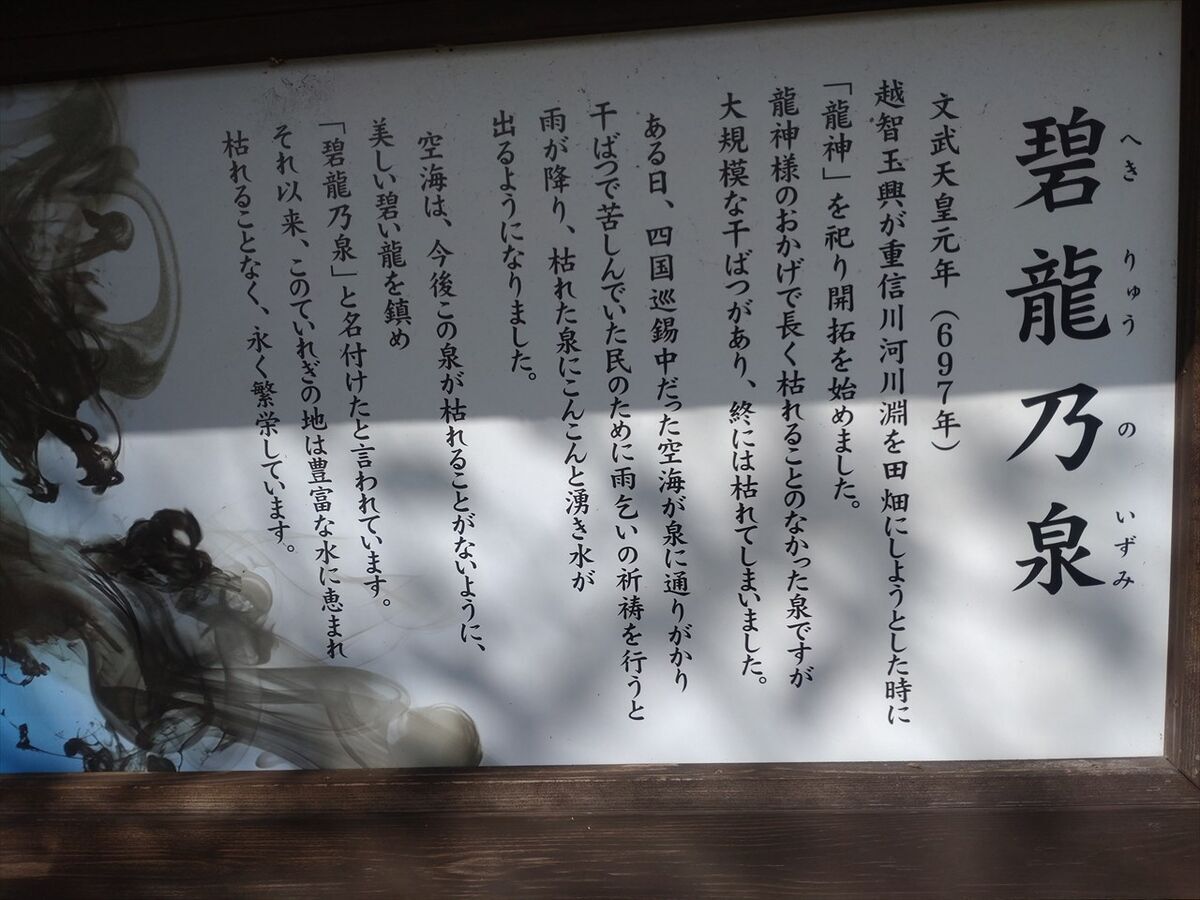 碧龍乃泉
へき りゅう の いずみ
文武天皇元年（697年）
越智玉興が重信川河川淵を田畑にしようとした時に
「龍神」を祀り開拓を始めました。
龍神様のおかげで長く枯れることのなかった泉ですが
大規模な干ばつがあり、終には枯れてしまいました。
ある日、四国巡錫中だった空海が泉に通りがかり
干ばつで苦しんでいた民のために雨乞いの祈祷を行うと
雨が降り、枯れた泉にこんこんと湧き水が
出るようになりました。
空海は、今後この泉が枯れることがないように、
美しい碧い龍を鎮め
「碧龍乃泉」と名付けたと言われています。
それ以来、このていれぎの地は豊富な水に恵まれ
枯れることなく、永く繁栄しています。